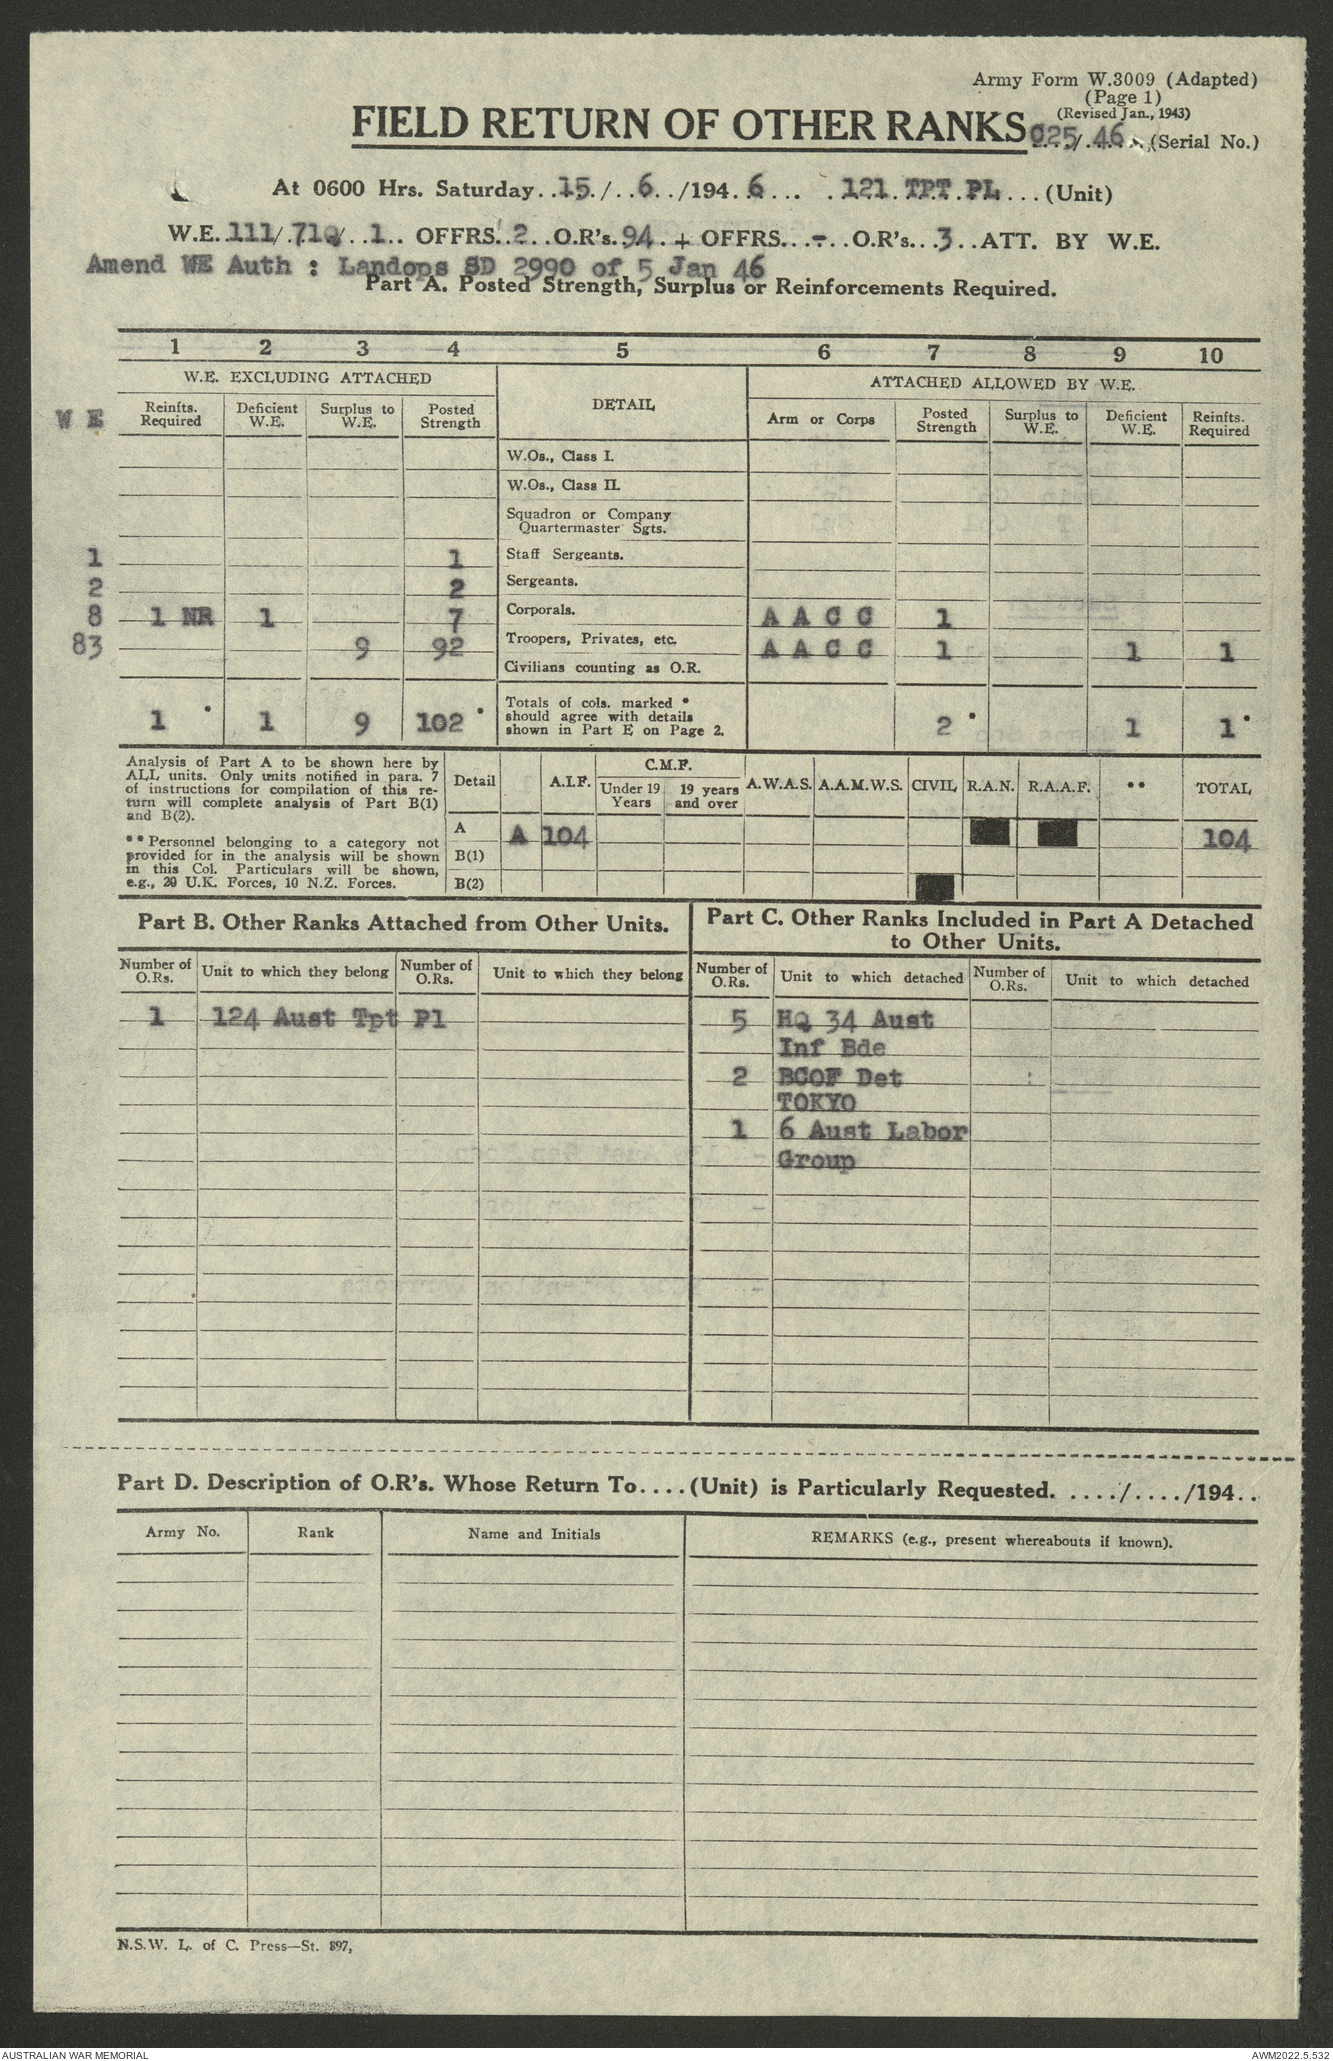 Army Form W.3009 (Adapted)
(Page 1)
(Revised Jan., 1943)
FIELD RETURN OF OTHER RANKS 025/.46..(Serial No.)
At 0600 Hrs. Saturday..15./..6../194.6... .121.TPT.PL...(Unit)
W.E.111/.71Q/..1.. OFFRS..2..O.R's.94.+ OFFRS...-..O.R's...3..ATT. BY W.E.
Amend WE Auth : Landops SD 2990 of 5 Jan 46
Part A. Posted Strength, Surplus or Reinforcements Required.
1 2 3 4 5 6 7 8 9 10
W.E. EXCLUDING ATTACHED DETAIL ATTACHED ALLOWED BY W.E.
W E Reinfts. Required Deficient W.E. Surplus to W.E. Posted Strength Arm or Corps Posted Strength Surplus to W.E. Deficient W.E. Reinfts. Required
W.Os., Class I.
W.Os., Class II.
Squadron or Company
Quartermaster Sgts.
1 1 Staff Sergeants.
2 2 Sergeants.
8 1 NR 1 7 Corporals. A A C C 1
83 9 92 Troopers, Privates, etc. A A C C 1 1 1
Civilians counting as O.R.
Totals of cols. marked *
should agree with details
shown in Part E on Page 2.
1 * 1 9 102 * 2 * 1 1 *
Analysis of Part A to be shown here by
ALL units. Only units notified in para. 7
of instructions for compilation of this re-
turn will complete analysis of Part B(1)
and B(2).
** Personnel belonging to a category not
provided for in the analysis will be shown
in this Col. Particulars will be shown,
e.g., 20 U.K. Forces, 10 N.Z. Forces.
Detail A.I.F. C.M.F. A.W.A.S. A.A.M.W.S. CIVIL R.A.N. R.A.A.F. ** TOTAL
Under 19 Years 19 years and over
A A 104 104
B(1)
B(2)
Part B. Other Ranks Attached from Other Units.
Number of O.Rs. Unit to which they belong Number of O.Rs. Unit to which they belong
1 124 Aust Tpt Pl
Part C. Other Ranks Included in Part A Detached
to Other Units.
Number of O.Rs. Unit to which detached Number of O.Rs. Unit to which detached
5 HQ 34 Aust
Inf Bde
2 BCOF Det
TOKYO
1 6 Aust Labor
Group
Part D. Description of O.R's. Whose Return To....(Unit) is Particularly Requested. ..../..../194..
Army No. Rank Name and Initials REMARKS (e.g., present whereabouts if known).
N.S.W. L. of C. Press—St. 897,
AUSTRALIAN WAR MEMORIAL AWM2022.5.532